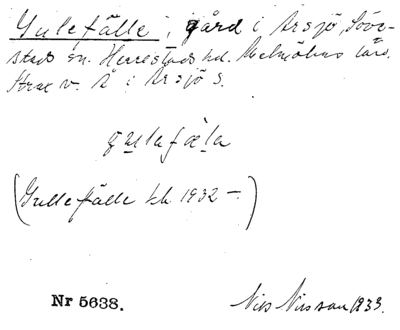 Gullefälle, gård i Årsjö, Söve-
stads sn. Herrestads hd. Malmöhus län.
Strax v. Å i Årsjö s.
gullafäla
(Gullefälle hk 1932 —)
Nr 5638.
Nils Nilsson 1933.